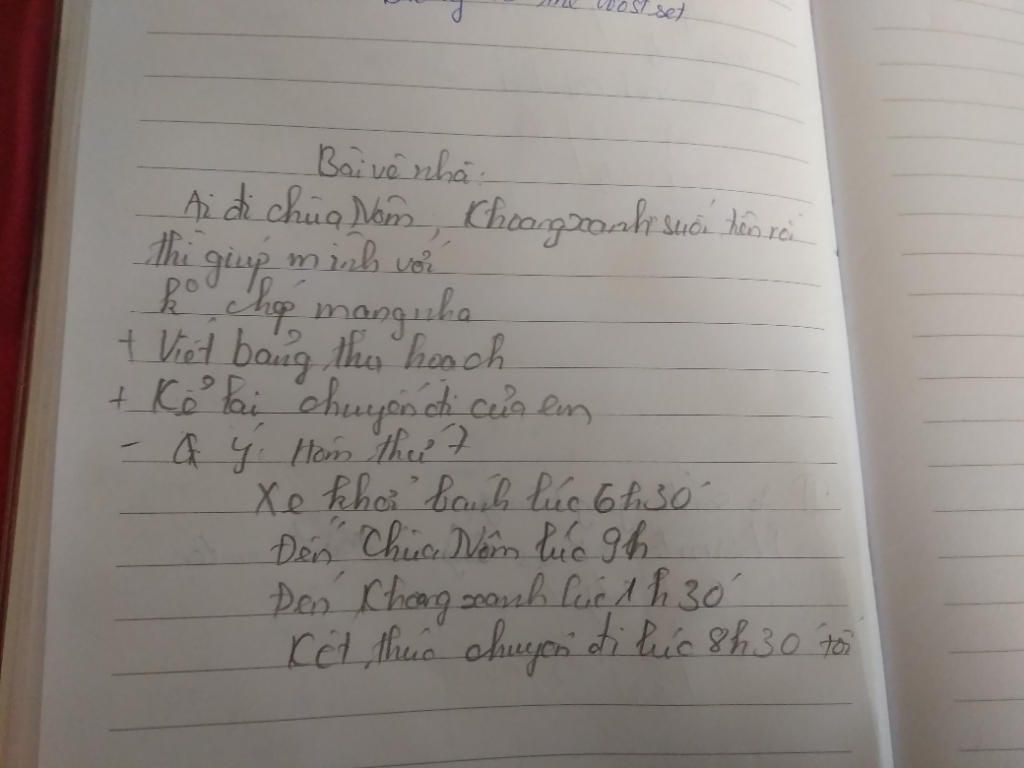 the wost set
Bài về nhà:
Ai đi chùa Nôm, Khoang xanh suối tiên rồi
thì giúp mình với
ko chép mạng nha
+ Viết bảng thu hoạch
+ Kể lại chuyến đi của em
- G ý: Hôm thứ 7
Xe khởi hành lúc 6h30'
Đến Chùa Nôm lúc 9h
Đến Khoang xanh lúc 1h30'
Kết thúc chuyến đi lúc 8h30 tối